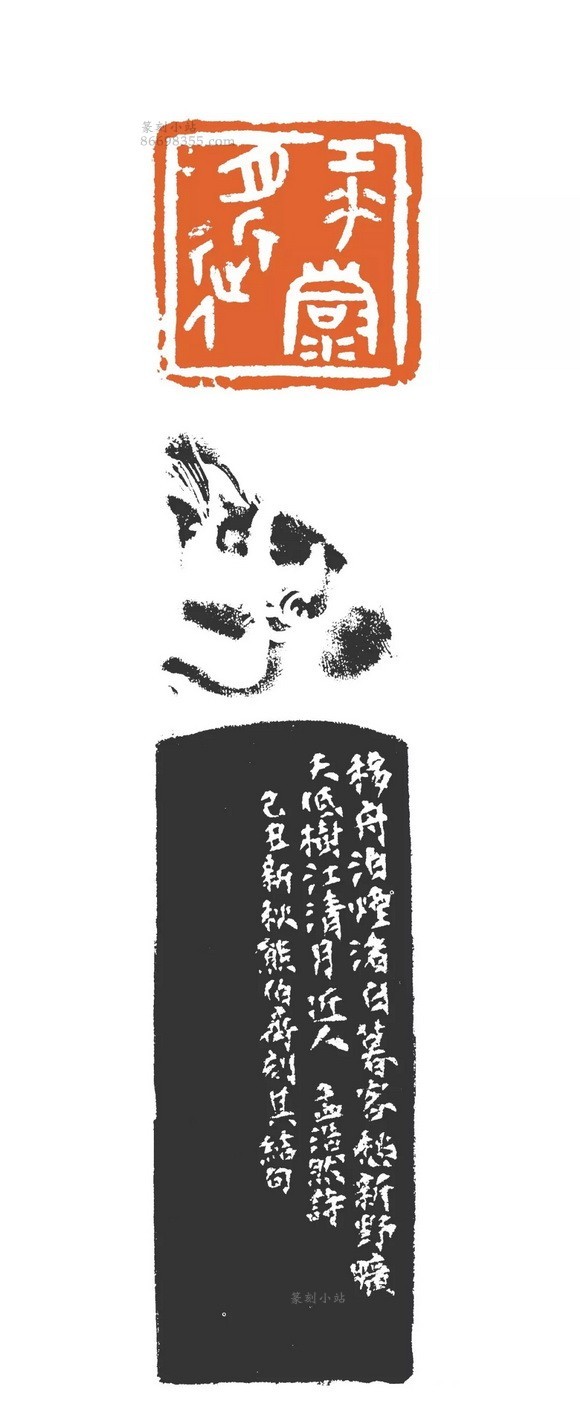 篆刻小站
86698355.com
江清
月近人
移舟泊煙渚日暮客愁新野曠
天低樹江清月近人 孟浩然詩
己丑新秋熊伯齊刻其結句
篆刻小站